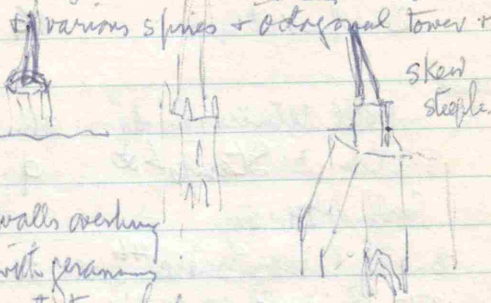 + various spires + octagonal tower +
skew
steeple.
walls overhung
with geraniums